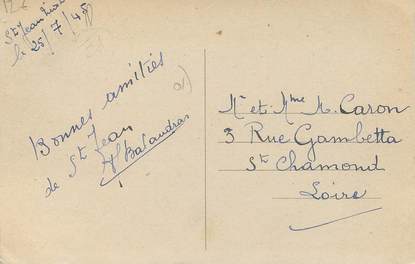 St Jean
le 25/7/45
Bonnes amitiés
de St Jean
Balandras
Mr et Mme A. Caron
3 Rue Gambetta
St Chamond
Loire